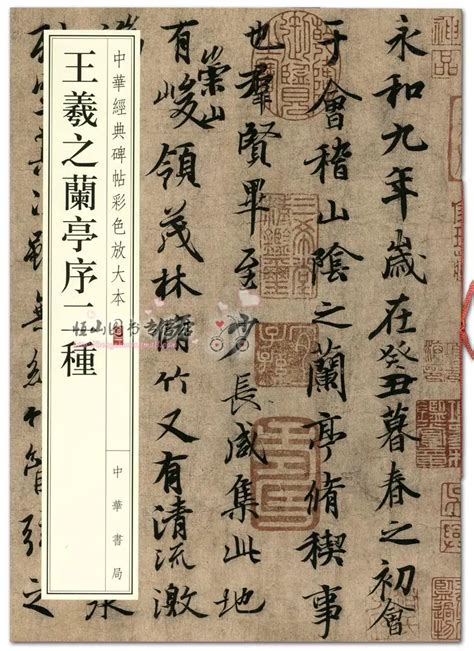 永和九年歲在癸丑暮春之初會
于會稽山陰之蘭亭脩稧事
也羣賢畢至少長咸集此地
有崇山峻領茂林脩竹又有清流激
中華經典碑帖彩色放大本
王羲之蘭亭序二種
中華書局
雖無絲竹管弦之
恒山图书专营店